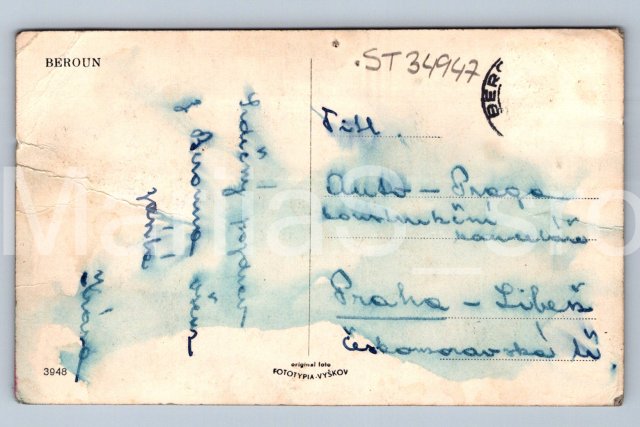 BEROUN
ST34947
BER
Titl.
Auto - Praga
konstrukční
kancelář
Praha - Libeň
Českomoravská tř.
Srdečný pozdrav
z Berouna
3948
original foto
FOTOTYPIA-VYŠKOV